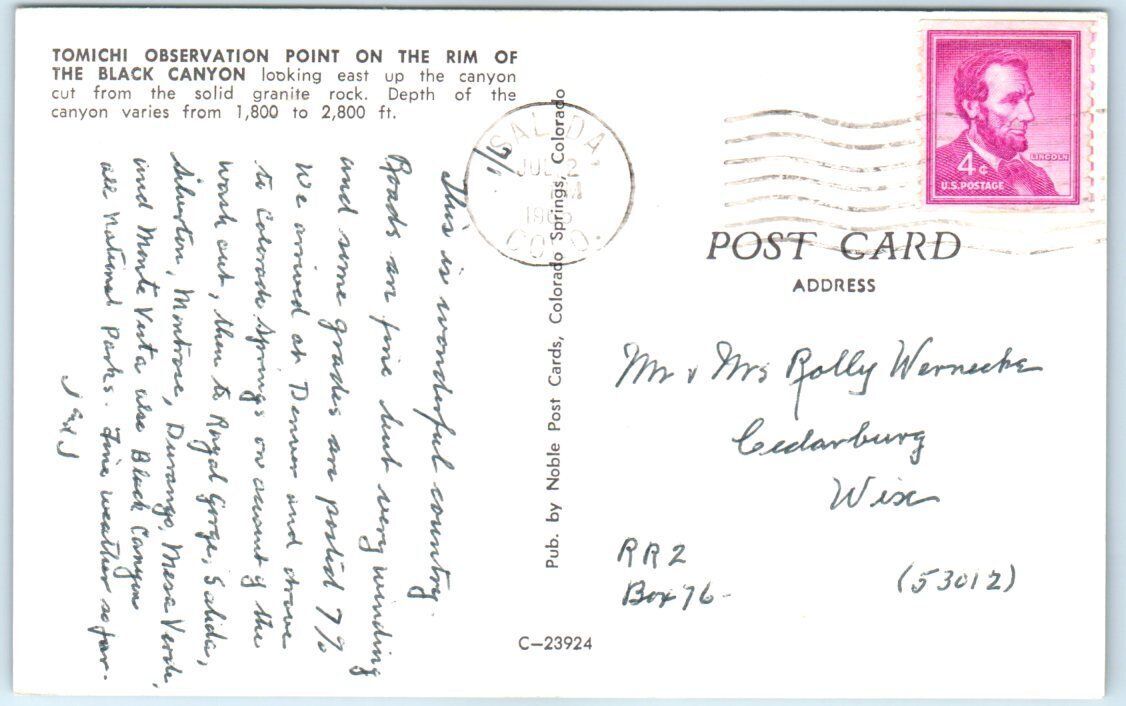 TOMICHI OBSERVATION POINT ON THE RIM OF
THE BLACK CANYON looking east up the canyon
cut from the solid granite rock. Depth of the
canyon varies from 1,800 to 2,800 ft.
7/1
This is wonderful country.
Roads are fine but very winding
and some grades are posted 7%
We arrived at Denver and drove
to Colorado Springs on account of the
wash out, then to Royal Gorge, Salida,
Silverton, Montrose, Durango, Mesa Verde,
and Monte Vista also Black Canyon
all National Parks. Fine weather so far.
Pub. by Noble Post Cards, Colorado Springs, Colorado
SALIDA
JUL 2
PM
1965
COLO.
4¢
LINCOLN
U.S. POSTAGE
POST CARD
ADDRESS
Mr & Mrs Rolly Wernecke
Cedarburg
Wisc
RR2
Box 76
(53012)
C-23924